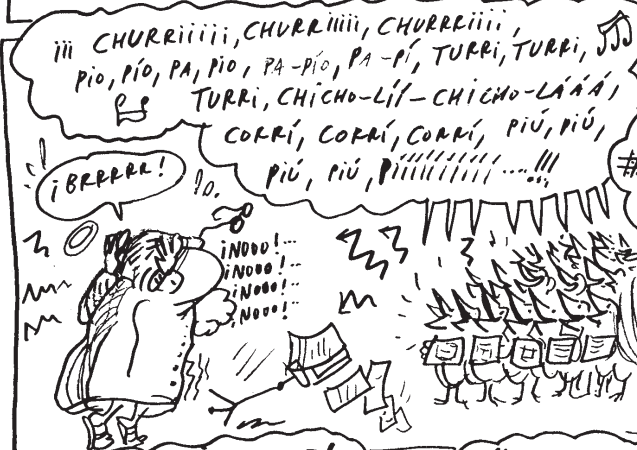 ¡¡¡ CHURRiiiii, CHURRiiiii, CHURRRiiii,
Pio, Pío, PA, Pio, PA-Pío, PA-Pí, TURRi, TURRi,
TURRi, CHiCHO-Líí-CHiCHO-LÁÁÁ,
CORRÍ, CORRÍ, CORRÍ, PiÚ, PiÚ,
PiÚ, PiÚ, Pííííííííííí....!!!
¡BRRRRR!
¡NOOO!...
¡NOOO!...
¡NOOO!...
¡NOOO!...